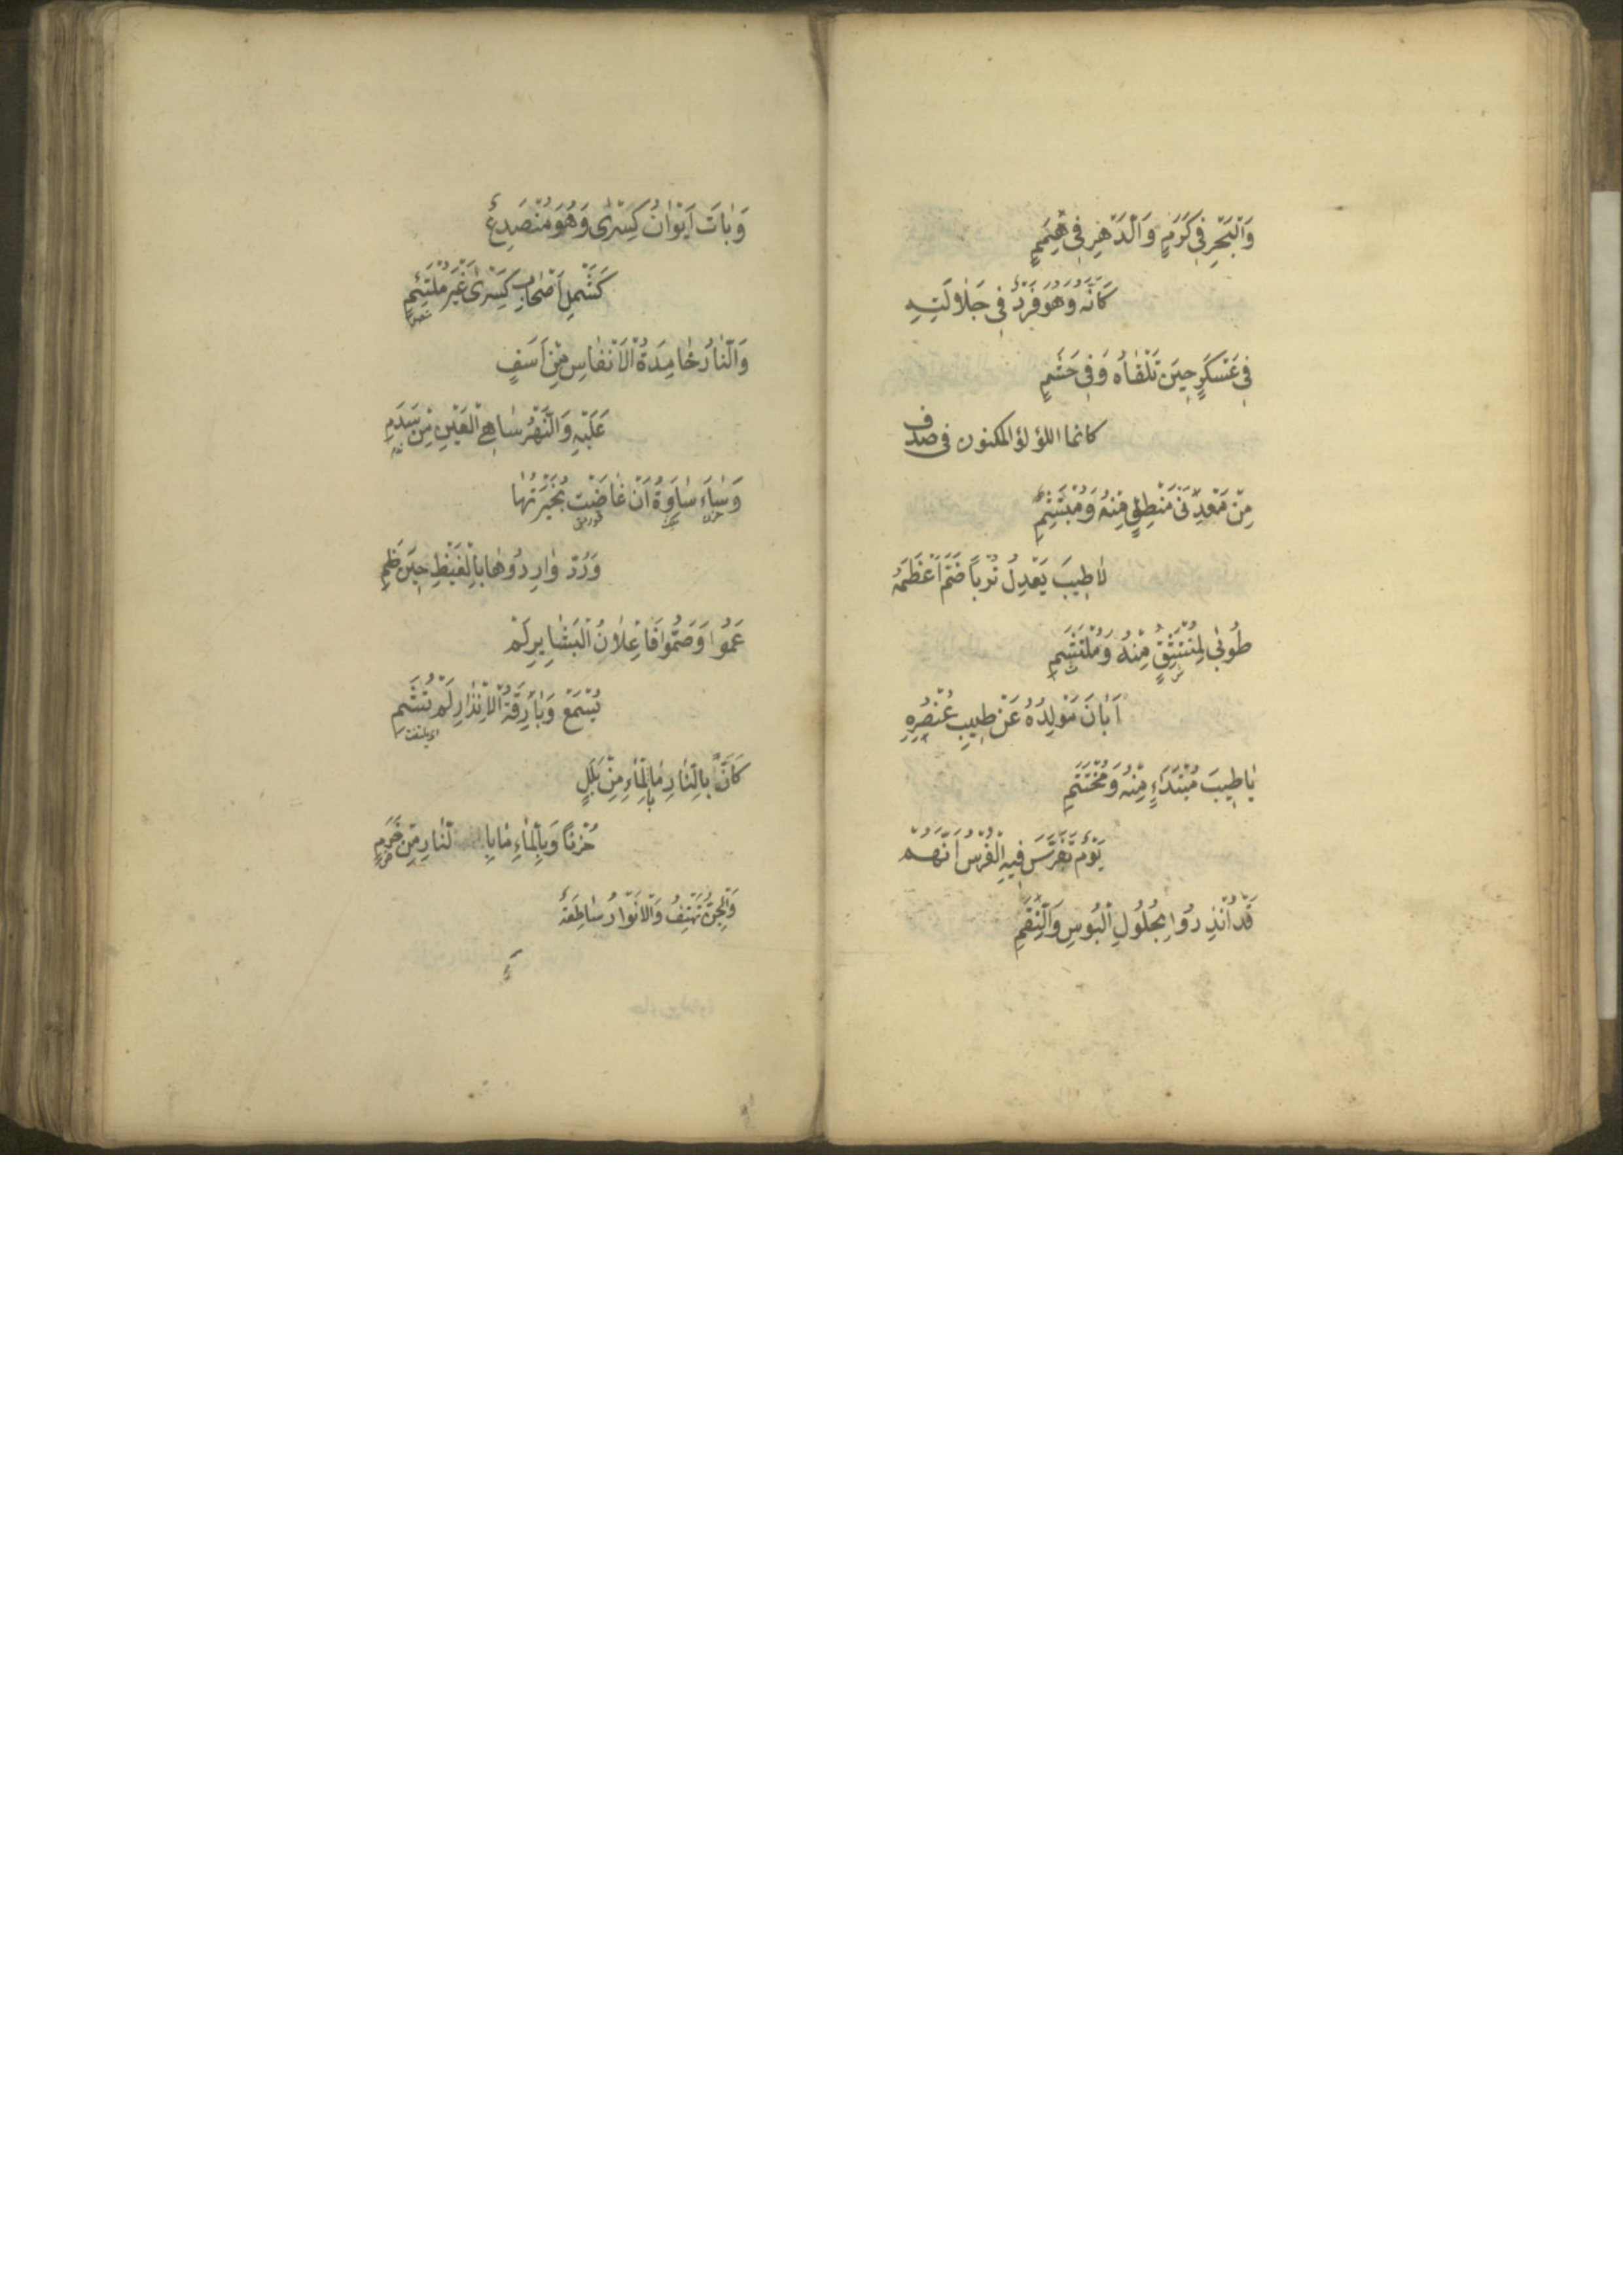 وَالْبَحْرِ فِي كَرَمٍ وَالدَّهْرِ فِي هِمَمٍ
كَاَنَّهُ وَهُوَ فَرْدٌ فِي جَلَالَتِهِ
فِي عَسْكَرٍ حِينَ تَلْقَاهُ وَفِي حَشَمٍ
كانما اللؤلؤ المكنون فى صدف
مِنْ مَعْدِنَىْ مَنْطِقٍ مِنْهُ وَمُبْتَسَمٍ
لَا طِيبَ يَعْدِلُ تُرْبًا ضَمَّ اَعْظُمَهُ
طُوبَى لِمُنْتَشِقٍ مِنْهُ وَمُلْتَثِمِ
اَبَانَ مَوْلِدُهُ عَنْ طِيبِ عُنْصُرِهِ
يَا طِيبَ مُبْتَدَاءٍ مِنْهُ وَمُخْتَتَمِ
يَوْمٌ تَفَرَّسَ فِيهِ الْفُرْسُ اَنَّهُمْ
قَدْ اُنْذِرُوا بِحُلُولِ الْبُوسِ وَالنِّقَمِ
وَبَاتَ اَيْوَانُ كِسْرَى وَهُوَ مُنْصَدِعٌ
كَشَمْلِ اَصْحَابِ كِسْرَى غَيْرَ مُلْتَئِمٍ
وَالنَّارُ خَامِدَةُ الْاَنْفَاسِ مِنْ اَسَفٍ
عَلَيْهِ وَالنَّهْرُ سَاهِي الْعَيْنِ مِنْ سَدَمِ
وَسَاءَ سَاوَةُ اَنْ غَاضَتْ بُحَيْرَتُهَا
وَرُدَّ وَارِدُوهَا بِالْغَيْظِ حِينَ ظَمِ
عَمُوا وَصَمُّوا فَاِعْلَانُ الْبَشَايِرِ لَمْ
تُسْمَعْ وَبَارِقَةُ الْاِنْذَارِ لَمْ تُشَمِ
كَاَنَّ بِالنَّارِ مَا بِالْمَاءِ مِنْ بَلَلٍ
حُزْنًا وَبِالْمَاءِ مَا بِالنَّارِ مِنْ ضَرَمٍ
وَالْجِنُّ تَهْتِفُ وَالْاَنْوَارُ سَاطِعَةٌ